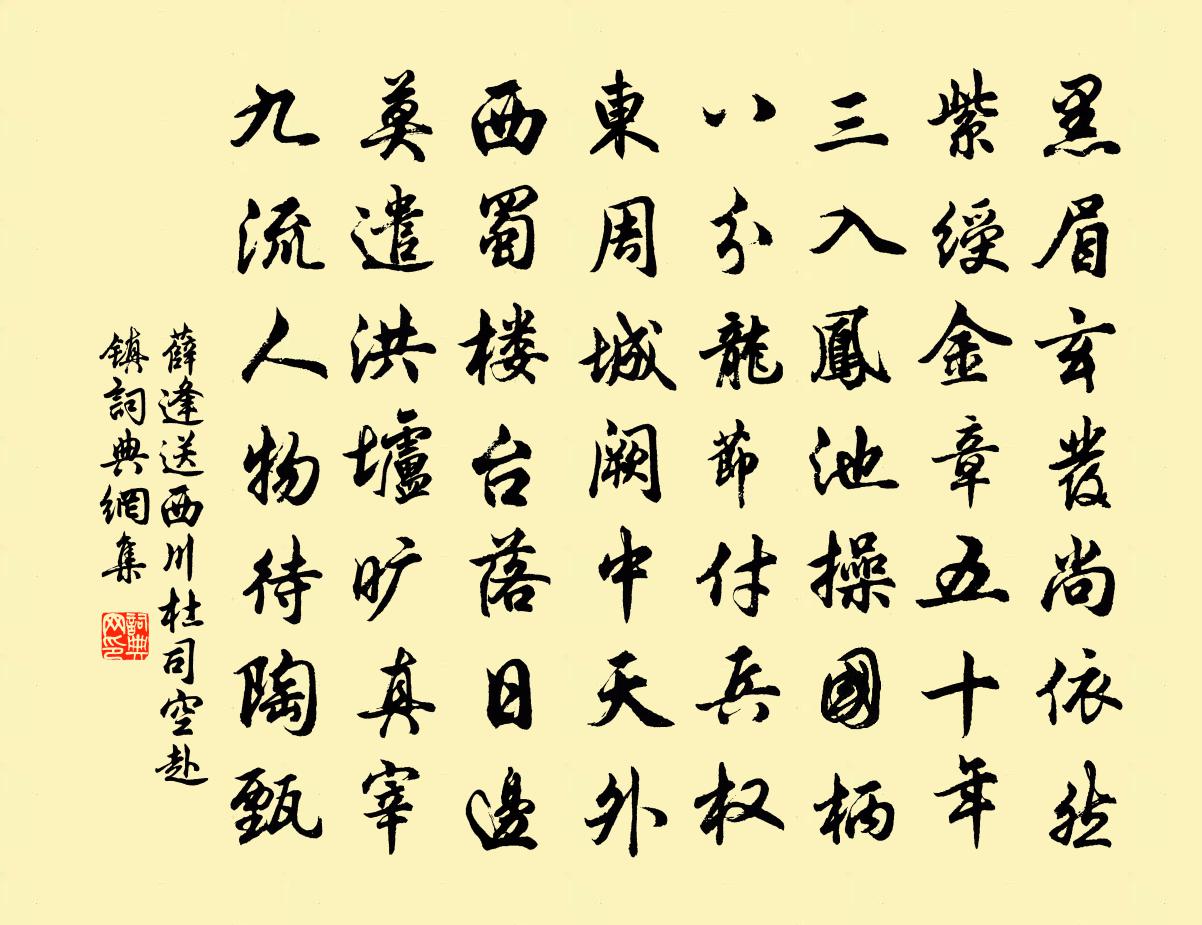 黑眉玄发尚依然
紫綬金章五十年
三入鳳池操國柄
八分龍節付兵权
東周城阙中天外
西蜀楼台落日邊
莫遣洪壚旷真宰
九流人物待陶甄
薛逢送西川杜司空赴
镇詞典網集
詞典
网印